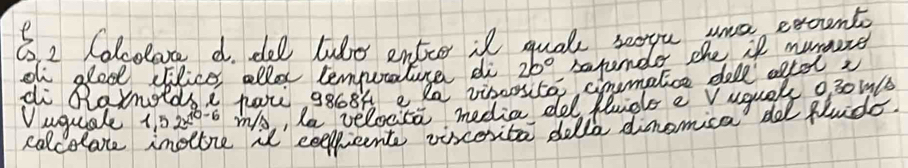 Es. 2 Calcolare d. del tubo entro il quale scorre una corrente
di alcol etilico alla temperatura di 20° sapendo che il numero
di Raynolds è pari 98684 e la viscosità cinematica dell alcol è
V uguale 1,52x10-6 m/s, la velocità media del fluido è V uguale 0,30 m/s
calcolare inoltre il coefficente viscosità della dinamica del fluido.